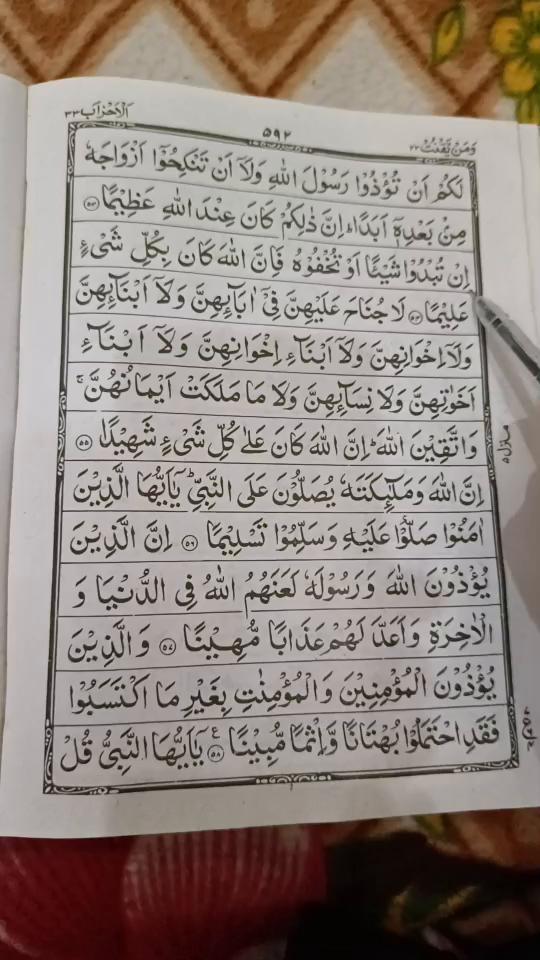 الاحزاب ٣٣
٥٩٢
وَمَنْ يَّقْنُتْ ٢٢
لَكُمْ اَنْ تُؤْذُوْا رَسُوْلَ اللّٰهِ وَلَاۤ اَنْ تَنْكِحُوْۤا اَزْوَاجَهٗ
مِنْۢ بَعْدِهٖۤ اَبَدًا ؕ اِنَّ ذٰلِكُمْ كَانَ عِنْدَ اللّٰهِ عَظِيْمًا ﴿۵۳﴾
اِنْ تُبْدُوْا شَيْـًٔا اَوْ تُخْفُوْهُ فَاِنَّ اللّٰهَ كَانَ بِكُلِّ شَىْءٍ
عَلِيْمًا ﴿۵۴﴾ لَا جُنَاحَ عَلَيْهِنَّ فِىْۤ اٰبَآئِهِنَّ وَلَاۤ اَبْنَآئِهِنَّ
وَلَاۤ اِخْوَانِهِنَّ وَلَاۤ اَبْنَآءِ اِخْوَانِهِنَّ وَلَاۤ اَبْنَآءِ
اَخَوٰتِهِنَّ وَلَا نِسَآئِهِنَّ وَلَا مَا مَلَكَتْ اَيْمَانُهُنَّ ۚ
وَاتَّقِيْنَ اللّٰهَ ؕ اِنَّ اللّٰهَ كَانَ عَلٰى كُلِّ شَىْءٍ شَهِيْدًا ﴿۵۵﴾
اِنَّ اللّٰهَ وَمَلٰٓئِكَتَهٗ يُصَلُّوْنَ عَلَى النَّبِىِّ ؕ يٰۤاَيُّهَا الَّذِيْنَ
اٰمَنُوْا صَلُّوْا عَلَيْهِ وَسَلِّمُوْا تَسْلِيْمًا ﴿۵۶﴾ اِنَّ الَّذِيْنَ
يُؤْذُوْنَ اللّٰهَ وَرَسُوْلَهٗ لَعَنَهُمُ اللّٰهُ فِى الدُّنْيَا وَ
الْاٰخِرَةِ وَاَعَدَّ لَهُمْ عَذَابًا مُّهِيْنًا ﴿۵۷﴾ وَالَّذِيْنَ
يُؤْذُوْنَ الْمُؤْمِنِيْنَ وَالْمُؤْمِنٰتِ بِغَيْرِ مَا اكْتَسَبُوْا
فَقَدِ احْتَمَلُوْا بُهْتَانًا وَّاِثْمًا مُّبِيْنًا ﴿۵۸﴾ ع يٰۤاَيُّهَا النَّبِىُّ قُلْ
منزل ٥